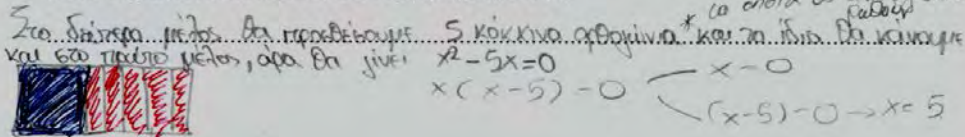 Στο δεύτερο μέλος θα προσθέσουμε 5 κόκκινα ορθογώνια * και το ίδιο θα κάνουμε
και στο πρώτο μέλος, άρα θα γίνει x²-5x=0
x(x-5)-0
x-0
(x-5)-0→x=5